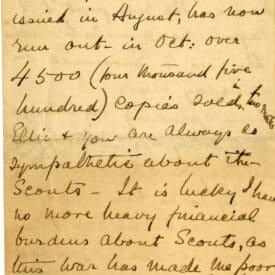 issued in August, has now
run out – in Oct: over
4500 (four thousand five
hundred) copies sold in two months
Ellie & you are always so
sympathetic about the
Scouts – It is lucky I have
no more heavy financial
burdens about Scouts, as
this war has made me poor